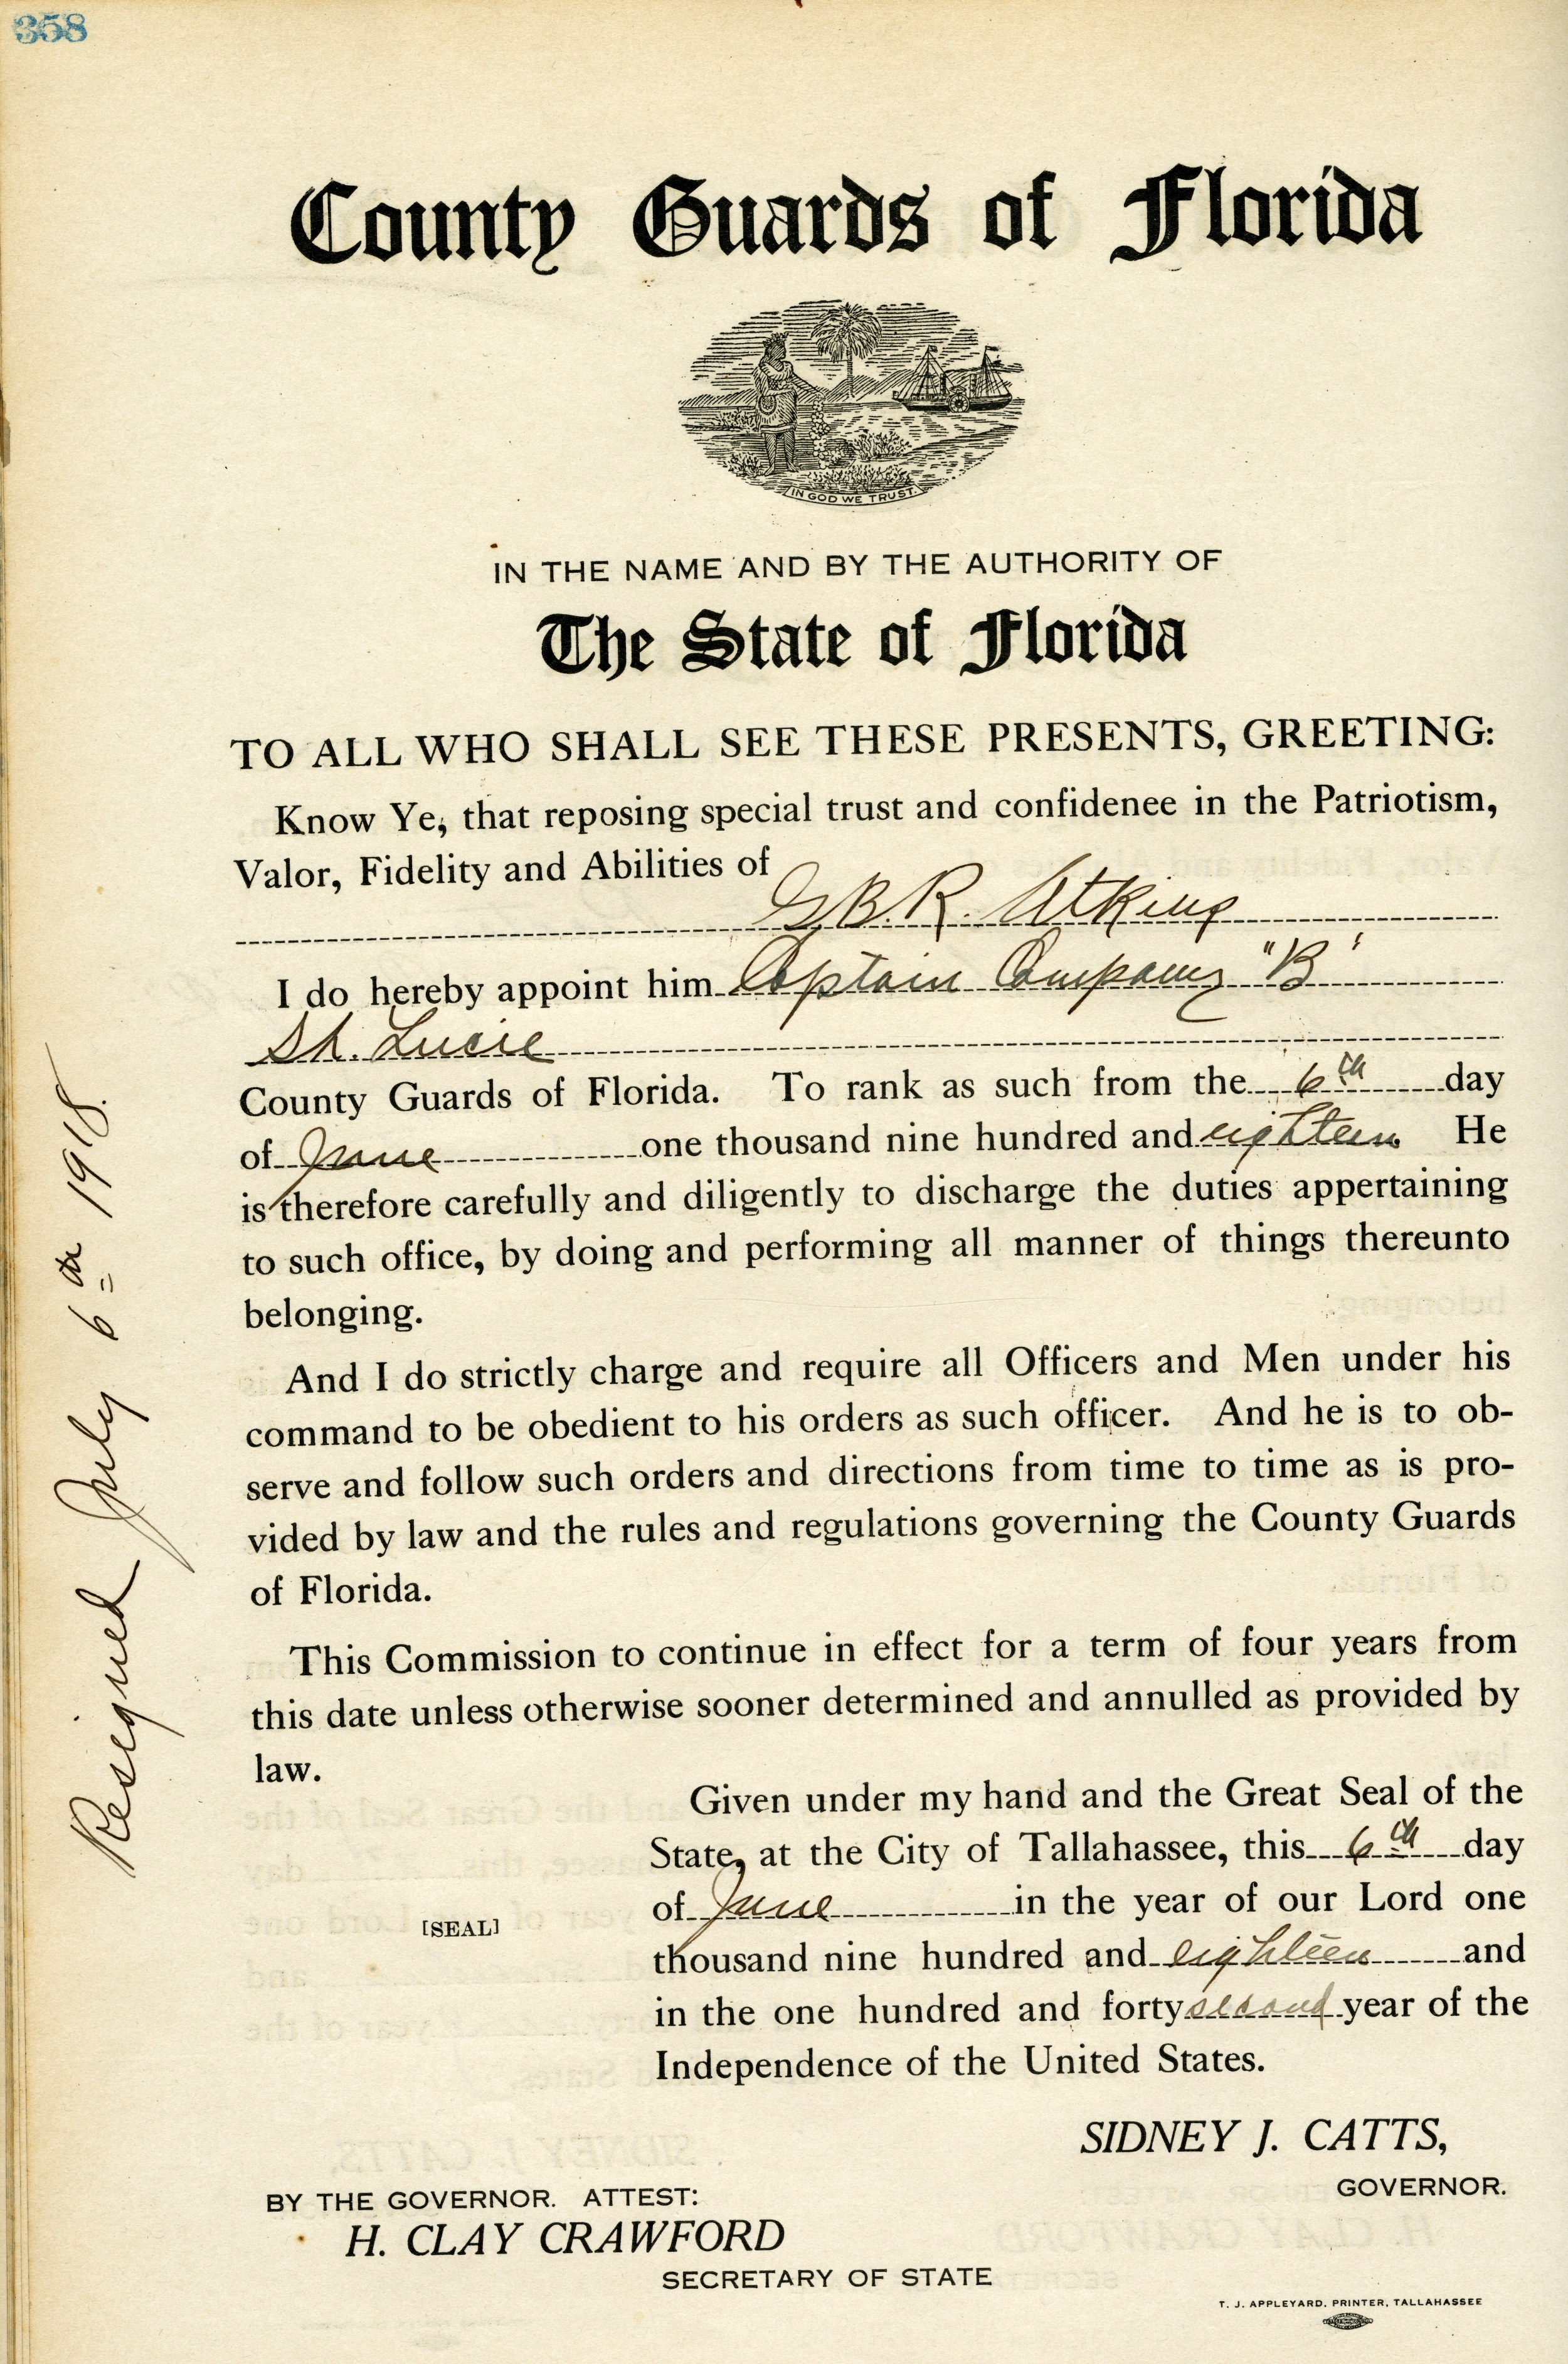 358
County Guards of Florida
IN GOD WE TRUST.
IN THE NAME AND BY THE AUTHORITY OF
The State of Florida
TO ALL WHO SHALL SEE THESE PRESENTS, GREETING:
Know Ye, that reposing special trust and confidenee in the Patriotism,
Valor, Fidelity and Abilities of
G.B.R. Atkins
I do hereby appoint him Captain Company "B"
St. Lucie
County Guards of Florida. To rank as such from the 6th day
of June one thousand nine hundred and eighteen He
is therefore carefully and diligently to discharge the duties appertaining
to such office, by doing and performing all manner of things thereunto
belonging.
And I do strictly charge and require all Officers and Men under his
command to be obedient to his orders as such officer. And he is to ob-
serve and follow such orders and directions from time to time as is pro-
vided by law and the rules and regulations governing the County Guards
of Florida.
This Commission to continue in effect for a term of four years from
this date unless otherwise sooner determined and annulled as provided by
law.
Given under my hand and the Great Seal of the
State, at the City of Tallahassee, this 6th day
of June in the year of our Lord one
[SEAL]
thousand nine hundred and eighteen and
in the one hundred and forty second year of the
Independence of the United States.
SIDNEY J. CATTS,
GOVERNOR.
BY THE GOVERNOR. ATTEST:
H. CLAY CRAWFORD
SECRETARY OF STATE
T. J. APPLEYARD, PRINTER, TALLAHASSEE
Resigned July 6th 1918.